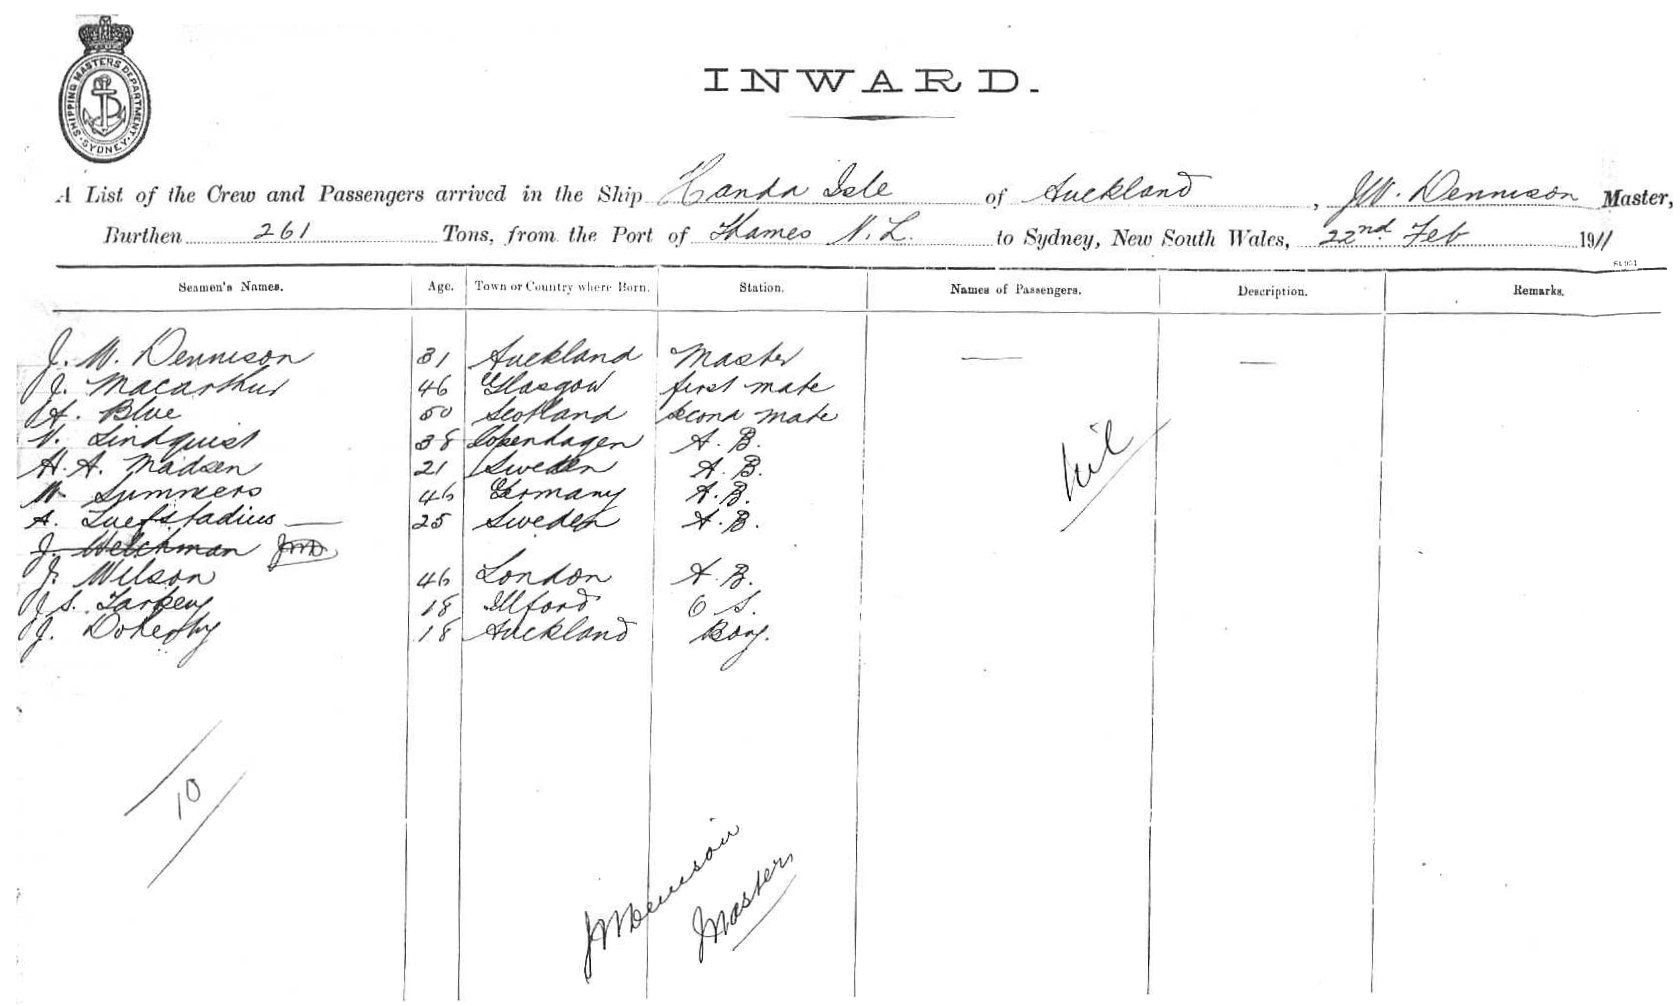 SHIPPING MASTERS DEPARTMENT
SYDNEY
INWARD.
A List of the Crew and Passengers arrived in the Ship Handa Isle of Auckland, J.W. Dennison Master,
Burthen 261 Tons, from the Port of Thames N.Z. to Sydney, New South Wales, 22nd Feb 1911
Seamen's Names. Age. Town or Country where Born. Station. Names of Passengers. Description. Remarks.
J. W. Dennison 31 Auckland Master — —
J. Macarthur 46 Glasgow first mate
A. Blue 50 Scotland Second mate
V. Lindquist 38 Copenhagen A. B.
H. A. Madsen 21 Sweden A. B.
W. Summers 46 Germany A. B.
A. 25 Sweden A. B.
J. Welchman JWD
J. Wilson 46 London A. B.
J. S. Tarpey 18 Ilford O S.
J. Doherty 18 Auckland Boy.
Nil
10
JWDennison
Master